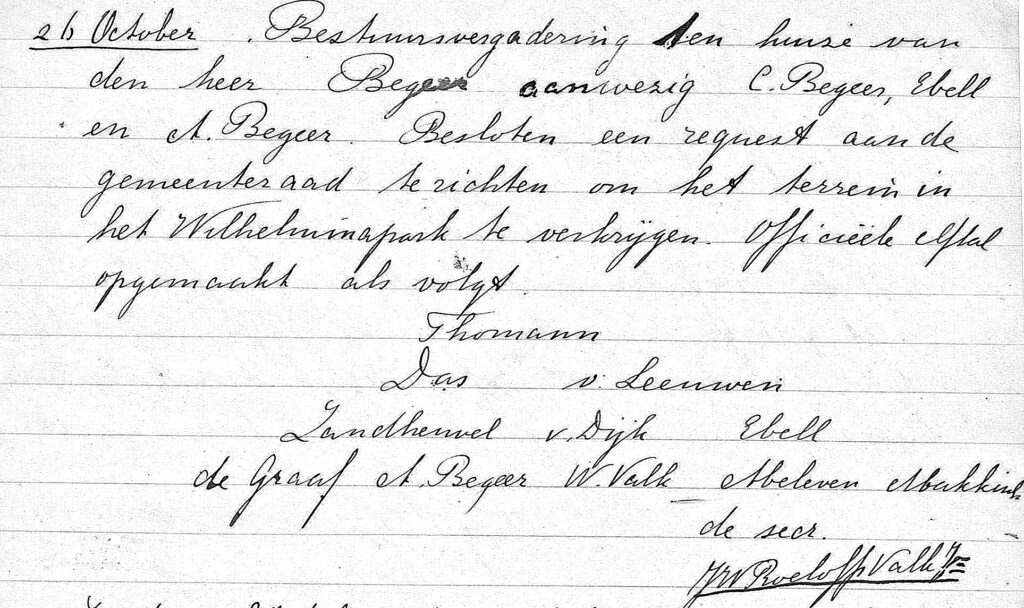 26 October. Bestuursvergadering ten huize van
den heer Begeer aanwezig C. Begeer, Ebell
en A. Begeer. Besloten een request aan de
gemeenteraad te richten om het terrein in
het Wilhelminapark te verkrijgen. Officiëele elftal
opgemaakt als volgt.
Thomann
Das v. Leeuwen
Zandheuvel v. Dijk Ebell
de Graaf A. Begeer W. Valk Abeleven Makkink
de secr.
JW Roeloffs Valk Jr